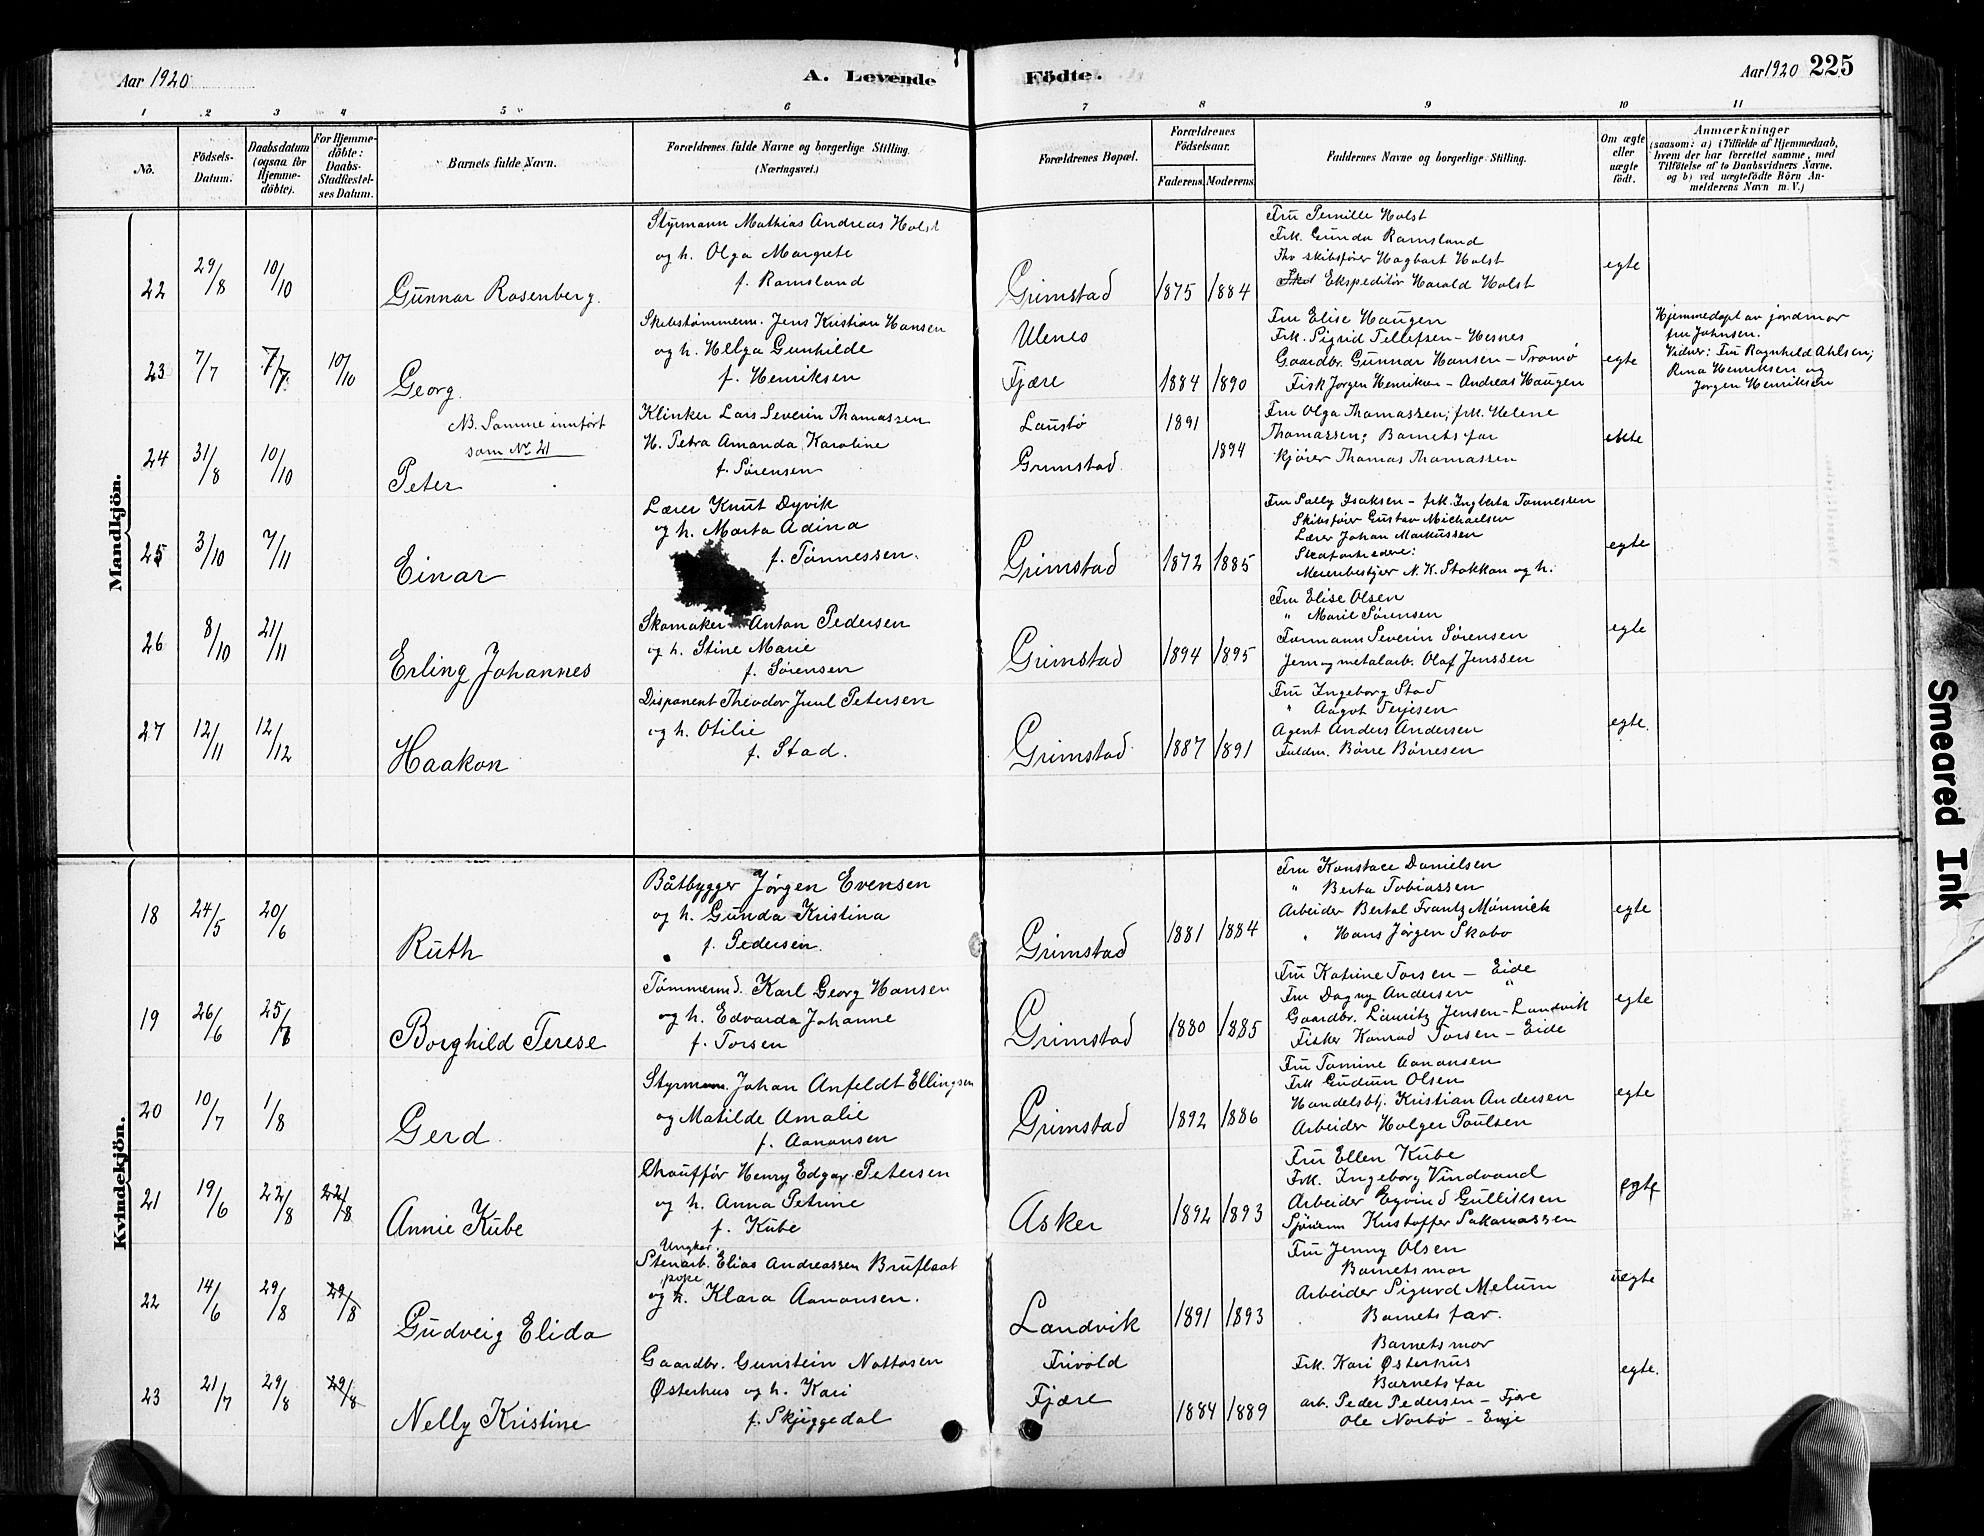 Aar 1920
A. Levende
Födte.
Aar 1920 225
1 2 3 4 5 6 7 8 9 10 11
No.
Födsels-
Datum.
Daabsdatum
(ogsaa for
Hjemme-
döbte).
For Hjemme-
döbte:
Daabs-
Stadfæstel-
ses Datum.
Barnets fulde Navn.
Forældrenes fulde Navne og borgerlige Stilling.
(Næringsvei.)
Forældrenes Bopæl.
Forældrenes
Födselsaar.
Faderens. Moderens.
Faddernes Navne og borgerlige Stilling.
Om ægte
eller
uægte
födt.
Anmærkninger
(saasom: a) i Tilfælde af Hjemmedaab,
hvem der har forrettet samme, med
Tilföielse af to Daabsvidners Navne.
og b) ved uægtefödte Börn An-
melderens Navn m. V.)
Mandkjön.
22 29/8 10/10 Gunnar Rosenberg.
Styrmann Mathias Andreas Holst
og h. Olga Margrete
f. Ramsland
Grimstad 1875 1884
Fru Pernille Holst
Frk. Gunda Ramsland
Skibsfører Hagbart Holst
Ekspeditør Harald Holst
egte
23 7/7 7/7 10/10 Georg.
Skibstømmerm. Jens Kristian Hansen
og h. Helga Gunhilde
f. Henriksen
Ulenes
Fjære 1884 1890
Fru Elise Haugen
Frk. Sigrid Tellefsen - Hesnes
Gaardbr. Gunnar Hansen - Tromø
Fisk Jørgen Henriksen - Andreas Haugen
egte
Hjemmedøpt av jordmor
fru Johnsen.
Vidner: Fru Ragnhild Ahlsen;
Rina Henriksen og
Jørgen Henriksen
NB. Samme innført
som No 21
24 31/8 10/10 Peter
Klinker Lars Severin Thomassen
H. Petra Amanda Karoline
f. Sørensen
Laustø 1891
Grimstad. 1894
Fru Olga Thomassen; frk. Helene
Thomassen; Barnets far
kjører Thomas Thomassen
ekte
25 3/10 7/11 Einar
Lærer Knut Dyvik
og h. Marta Adina
f. Tønnessen.
Grimstad 1872 1885
Fru Sally Isaksen - frk. Ingberta Tønnessen
Skibsfører Gustav Michaelsen
Lærer Johan Markussen
Meieribestyer N. K. Stokkan og h.
egte
26 8/10 21/11 Erling Johannes
Skomaker Anton Pedersen
og h. Stine Marie
f. Sørensen
Grimstad 1894 1895
Fru Elise Olsen
" Marie Sørensen
Formann Severin Sørensen
Jern og metalarb. Olaf Jenssen
egte
27 12/11 12/12 Haakon
Disponent Theodor Juul Petersen
og h. Otilie
f. Stad.
Grimstad 1887 1891
Fru Ingeborg Stad
" Aagot Terjesen
Agent Anders Andersen
Fuldm. Børre Børresen
egte.
Kvindekjön.
18 24/5 20/6 Ruth
Båtbygger Jørgen Evensen
og h. Gunda Kristina
f. Pedersen.
Grimstad 1881 1884
Fru Konstace Danielsen
" Berta Tobiassen
Arbeider Bertal Frantz Mønnich
" Hans Jørgen Skabo
egte
19 26/6 25/7 Borghild Terese
Tømmermd. Karl Georg Hansen
og h. Edvarda Johanne
f. Torsen
Grimstad 1880 1885
Fru Katrine Torsen - Eide
Fru Dagny Andersen "
Gaardbr. Lauritz Jensen - Landvik
Fisker Konrad Torsen - Eide
egte
20 10/7 1/8 Gerd.
Styrmann. Johan Anfeldt Ellingsen
og Matilde Amalie
f. Aanonsen
Grimstad 1892 1886
Fru Tomine Aanonsen
Frk Gudrun Olsen
Handelsbtj. Kristian Andersen
Arbeider Holger Poulsen
egte
21 19/6 22/8 22/8 Annie Kube
Chauffør Henry Edgar Petersen
og h. Anna Petrine
f. Kube
Asker 1892 1893
Fru Ellen Kube
Frk. Ingeborg Vindvand
Arbeider Eyvind Gulliksen
Sjømm Kristoffer Sakariassen
egte
22 14/6 29/8 29/8 Gudveig Elida
Ungkar.
Stenarb. Elias Andreassen Bruflaat
pope
og h. Klara Aanonsen.
Landvik 1891 1893
Fru Jenny Olsen
Barnets mor
Arbeider Sigurd Melum
Barnets far.
uegte
23 21/7 29/8 29/8 Nelly Kristine
Gaardbr. Gunstein Nottosen
Østerhus og h. Kari
f. Skjeggedal
Frivold
Fjære 1884 1889
Barnets mor
Frk. Kari Østerhus
Barnets far
arb. Peder Pedersen - Fjære
Ole Norbø - Evje
egte.
Smeared Ink